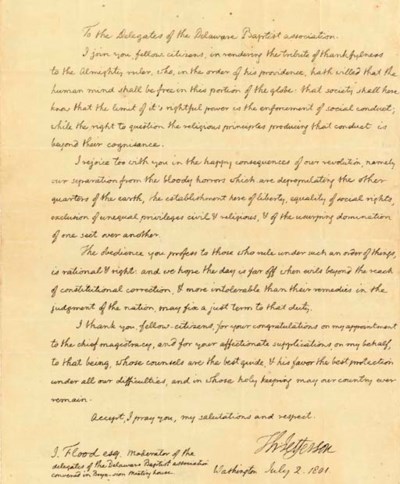 To the Delegates of the Delaware Baptist association.
I join you, fellow citizens, in rendering the tribute of thankfulness
to the Almighty ruler, who, in the order of his providence, hath willed that the
human mind shall be free in this portion of the globe: that society shall here
know that the limit of it's rightful power is the enforcement of social conduct;
while the right to question the religious principles producing that conduct is
beyond their cognisance.
I rejoice too with you in the happy consequences of our revolution, namely
our separation from the bloody horrors which are depopulating the other
quarters of the earth, the establishment here of liberty, equality of social rights,
exclusion of unequal privileges civil & religious, & of the usurping domination
of one sect over another.
The obedience you profess to those who rule under such an order of things,
is rational & right: and we hope the day is far off when evils beyond the reach
of constitutional correction, & more intolerable than their remedies in the
judgment of the nation, may fix a just term to that duty.
I thank you, fellow citizens, for your congratulations on my appointment
to the chief magistracy, and for your affectionate supplications on my behalf,
to that being, whose counsels are the best guide, & his favor the best protection
under all our difficulties, and in whose holy keeping may our country ever
remain.
Accept, I pray you, my salutations and respect.
Th: Jefferson
J. Flood esq. Moderator of the
delegates of the Delaware Baptist association
convened in Bryn-zion Meeting house
Washington July 2. 1801